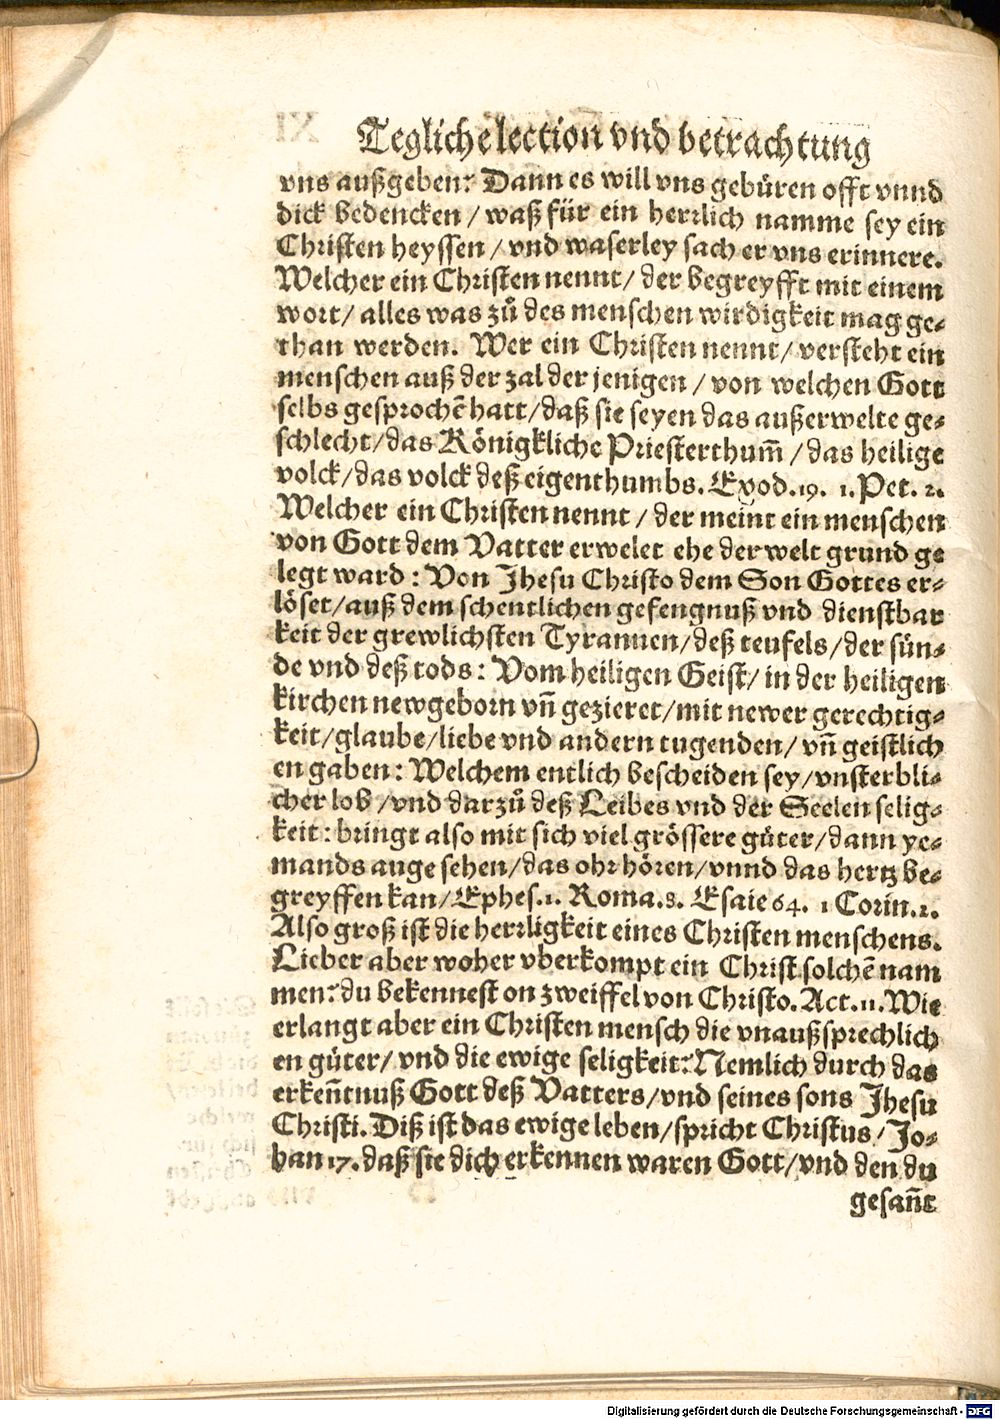 Teglichelection vnd betrachtung
vns außgeben? Dann es will vns gebüren offt vnnd
dick bedencken / waß für ein herrlich namme sey ein
Christen heyssen / vnd waserley sach er vns erinnere.
Welcher ein Christen nennt / der begreyfft mit einem
wort / alles was zů des menschen wirdigkeit mag ge⸗
than werden. Wer ein Christen nennt / versteht ein
menschen auß der zal der jenigen / von welchen Gott
selbs gesprochẽ hatt / daß sie seyen das außerwelte ge⸗
schlecht / das Königkliche Priesterthum̃ / das heilige
volck / das volck deß eigenthumbs. Exod. 19. 1. Pet. 2.
Welcher ein Christen nennt / der meint ein menschen
von Gott dem Vatter erwelet ehe der welt grund ge
legt ward : Von Jhesu Christo dem Son Gottes er⸗
löset / auß dem schentlichen gefengnuß vnd dienstbar
keit der grewlichsten Tyrannen / deß teufels / der sün⸗
de vnd deß tods : Vom heiligen Geist / in der heiligen
kirchen newgeborn vñ gezieret / mit newer gerechtig⸗
keit / glaube / liebe vnd andern tugenden / vñ geistlich
en gaben : Welchem entlich bescheiden sey / vnsterbli⸗
cher lob / vnd darzů deß Leibes vnd der Seelen selig⸗
keit : bringt also mit sich viel grössere güter / dann ye⸗
mands auge sehen / das ohr hören / vnnd das hertz be⸗
greyffen kan / Ephes. 1. Roma. 8. Esaie 64. 1 Corin. 2.
Also groß ist die herrligkeit eines Christen menschens.
Lieber aber woher vberkompt ein Christ solchẽ nam
men? du bekennest on zweiffel von Christo. Act. 11. Wie
erlangt aber ein Christen mensch die vnaußsprechlich
en güter / vnd die ewige seligkeit? Nemlich durch das
erkeñtnuß Gott deß Vatters / vnd seines sons Jhesu
Christi. Diß ist das ewige leben / spricht Christus / Jo⸗
han 17. daß sie dich erkennen waren Gott / vnd den du
gesañt
Digitalisierung gefördert durch die Deutsche Forschungsgemeinschaft - DFG